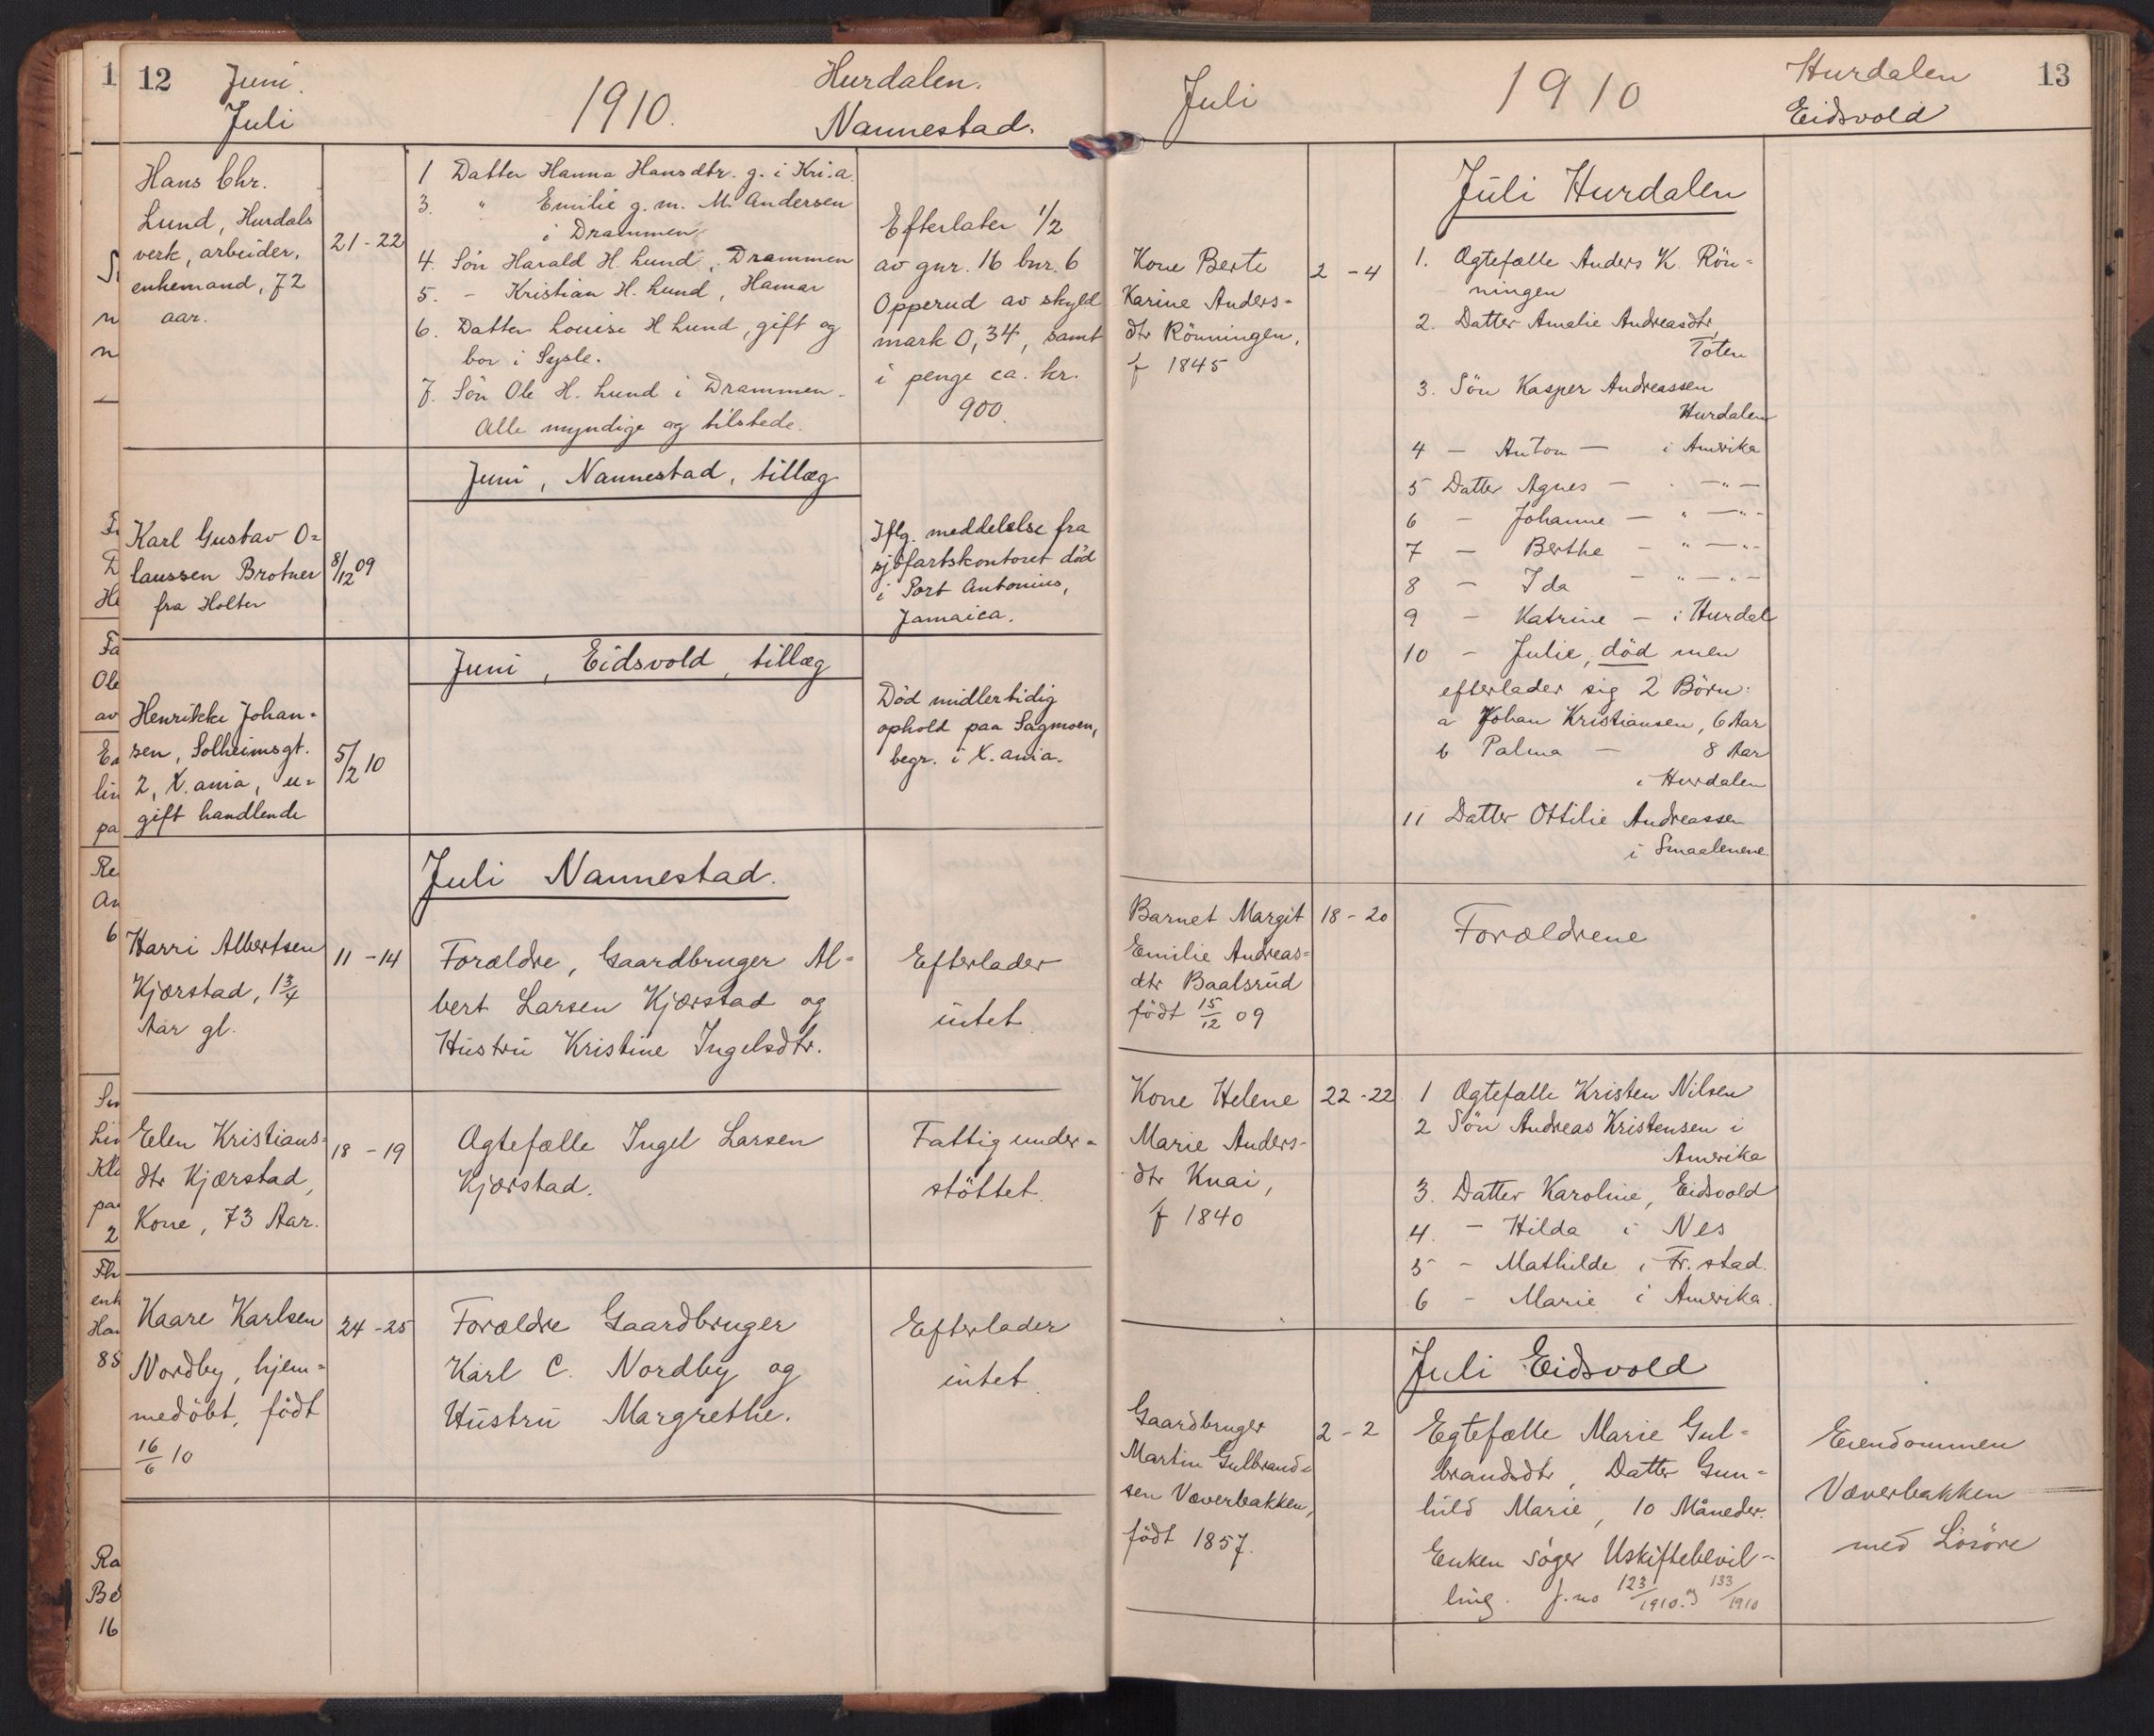 12
Juni.
Juli
1910.
Hurdalen.
Nannestad.
Hans Chr.
Lund, Hurdals
verk, arbeider,
enkemand, 72
aar.
21-22
1 Datter Hanna Hansdtr. g. i Kri.a.
3. " Emilie g. m. M. Andersen
i Drammen
4. Sön Harald H. Lund, Drammen
5. - Kristian H. Lund, Hamar
6. Datter Louise H Lund, gift og
bor i Sysle.
7. Sön Ole H. Lund i Drammen.
Alle myndige og tilstede.
Efterlater 1/2
av gnr. 16 bnr. 6
Opperud av skyld
mark 0,34, samt
i penge ca. kr.
900.
Juni, Nannestad, tillæg
Karl Gustav O=
laussen Brotner
fra Holter
8/12 09
Iflg. meddelelse fra
sjöfartskontoret död
i Port Antonius,
Jamaica.
Juni, Eidsvold, tillæg
Henrikke Johan=
sen, Solheimsgt.
2, X.ania, u=
gift handlende
5/2 10
Död midlertidig
ophold paa Sagmoen,
begr. i X.ania.
Juli Nannestad.
Harri Albertsen
Kjærstad, 1 3/4
Aar gl.
11-14
Forældre, Gaardbruger Al=
bert Larsen Kjærstad og
Hustru Kristine Ingelsdtr.
Efterlader
intet.
Elen Kristians=
dtr Kjærstad,
Kone, 73 Aar.
18-19
Ægtefælle Ingel Larsen
Kjærstad.
Fattigunder=
stöttet.
Kaare Karlsen
Nordby, hjem=
medöbt, födt
16/6 10
24-25
Forældre Gaardbruger
Karl C. Nordby og
Hustru Margrethe.
Efterlader
intet.
Juli
1910
Hurdalen
Eidsvold
13
Juli Hurdalen
Kone Berte
Karine Anders=
dtr Rönningen,
f 1845
2-4
1. Ægtefælle Anders K. Rön=
ningen
2. Datter Amalie Andreasdtr,
Toten
3. Sön Kasper Andreassen
Hurdalen
4 - Anton - i Amerika
5 Datter Agnes - " - " -
6 - Johanne - " - " -
7 - Berthe - " - " -
8 - Ida - " - " -
9 - Katrine - i Hurdal
10 - Julie, död men
efterlader sig 2 Börn:
a Johan Kristiansen, 6 Aar
b Palma - 8 Aar
i Hurdalen
11 Datter Ottilie Andreassen
i Smaalenene
Barnet Margit
Emilie Andreas=
dtr Baalsrud
födt 15/12 09
18-20
Forældrene
Kone Helene
Marie Anders-
dtr Knai,
f 1840
22-22
1 Ægtefælle Kristen Nilsen
2 Sön Andreas Kristensen i
Amerika
3. Datter Karoline, Eidsvold
4. - Hilda i Nes
5 - Mathilde i Fr.stad.
6 - Marie i Amerika.
Juli Eidsvold
Gaardbruger
Martin Gulbrand=
sen Væverbakken,
födt 1857.
2-2
Egtefælle Marie Gul=
brandsdtr, Datter Gun=
hild Marie, 10 Måneder.
Enken söger Uskiftebevil=
ling. J.no 123/1910. og 133/1910
Eiendommen
Væverbakken
med Lösöre